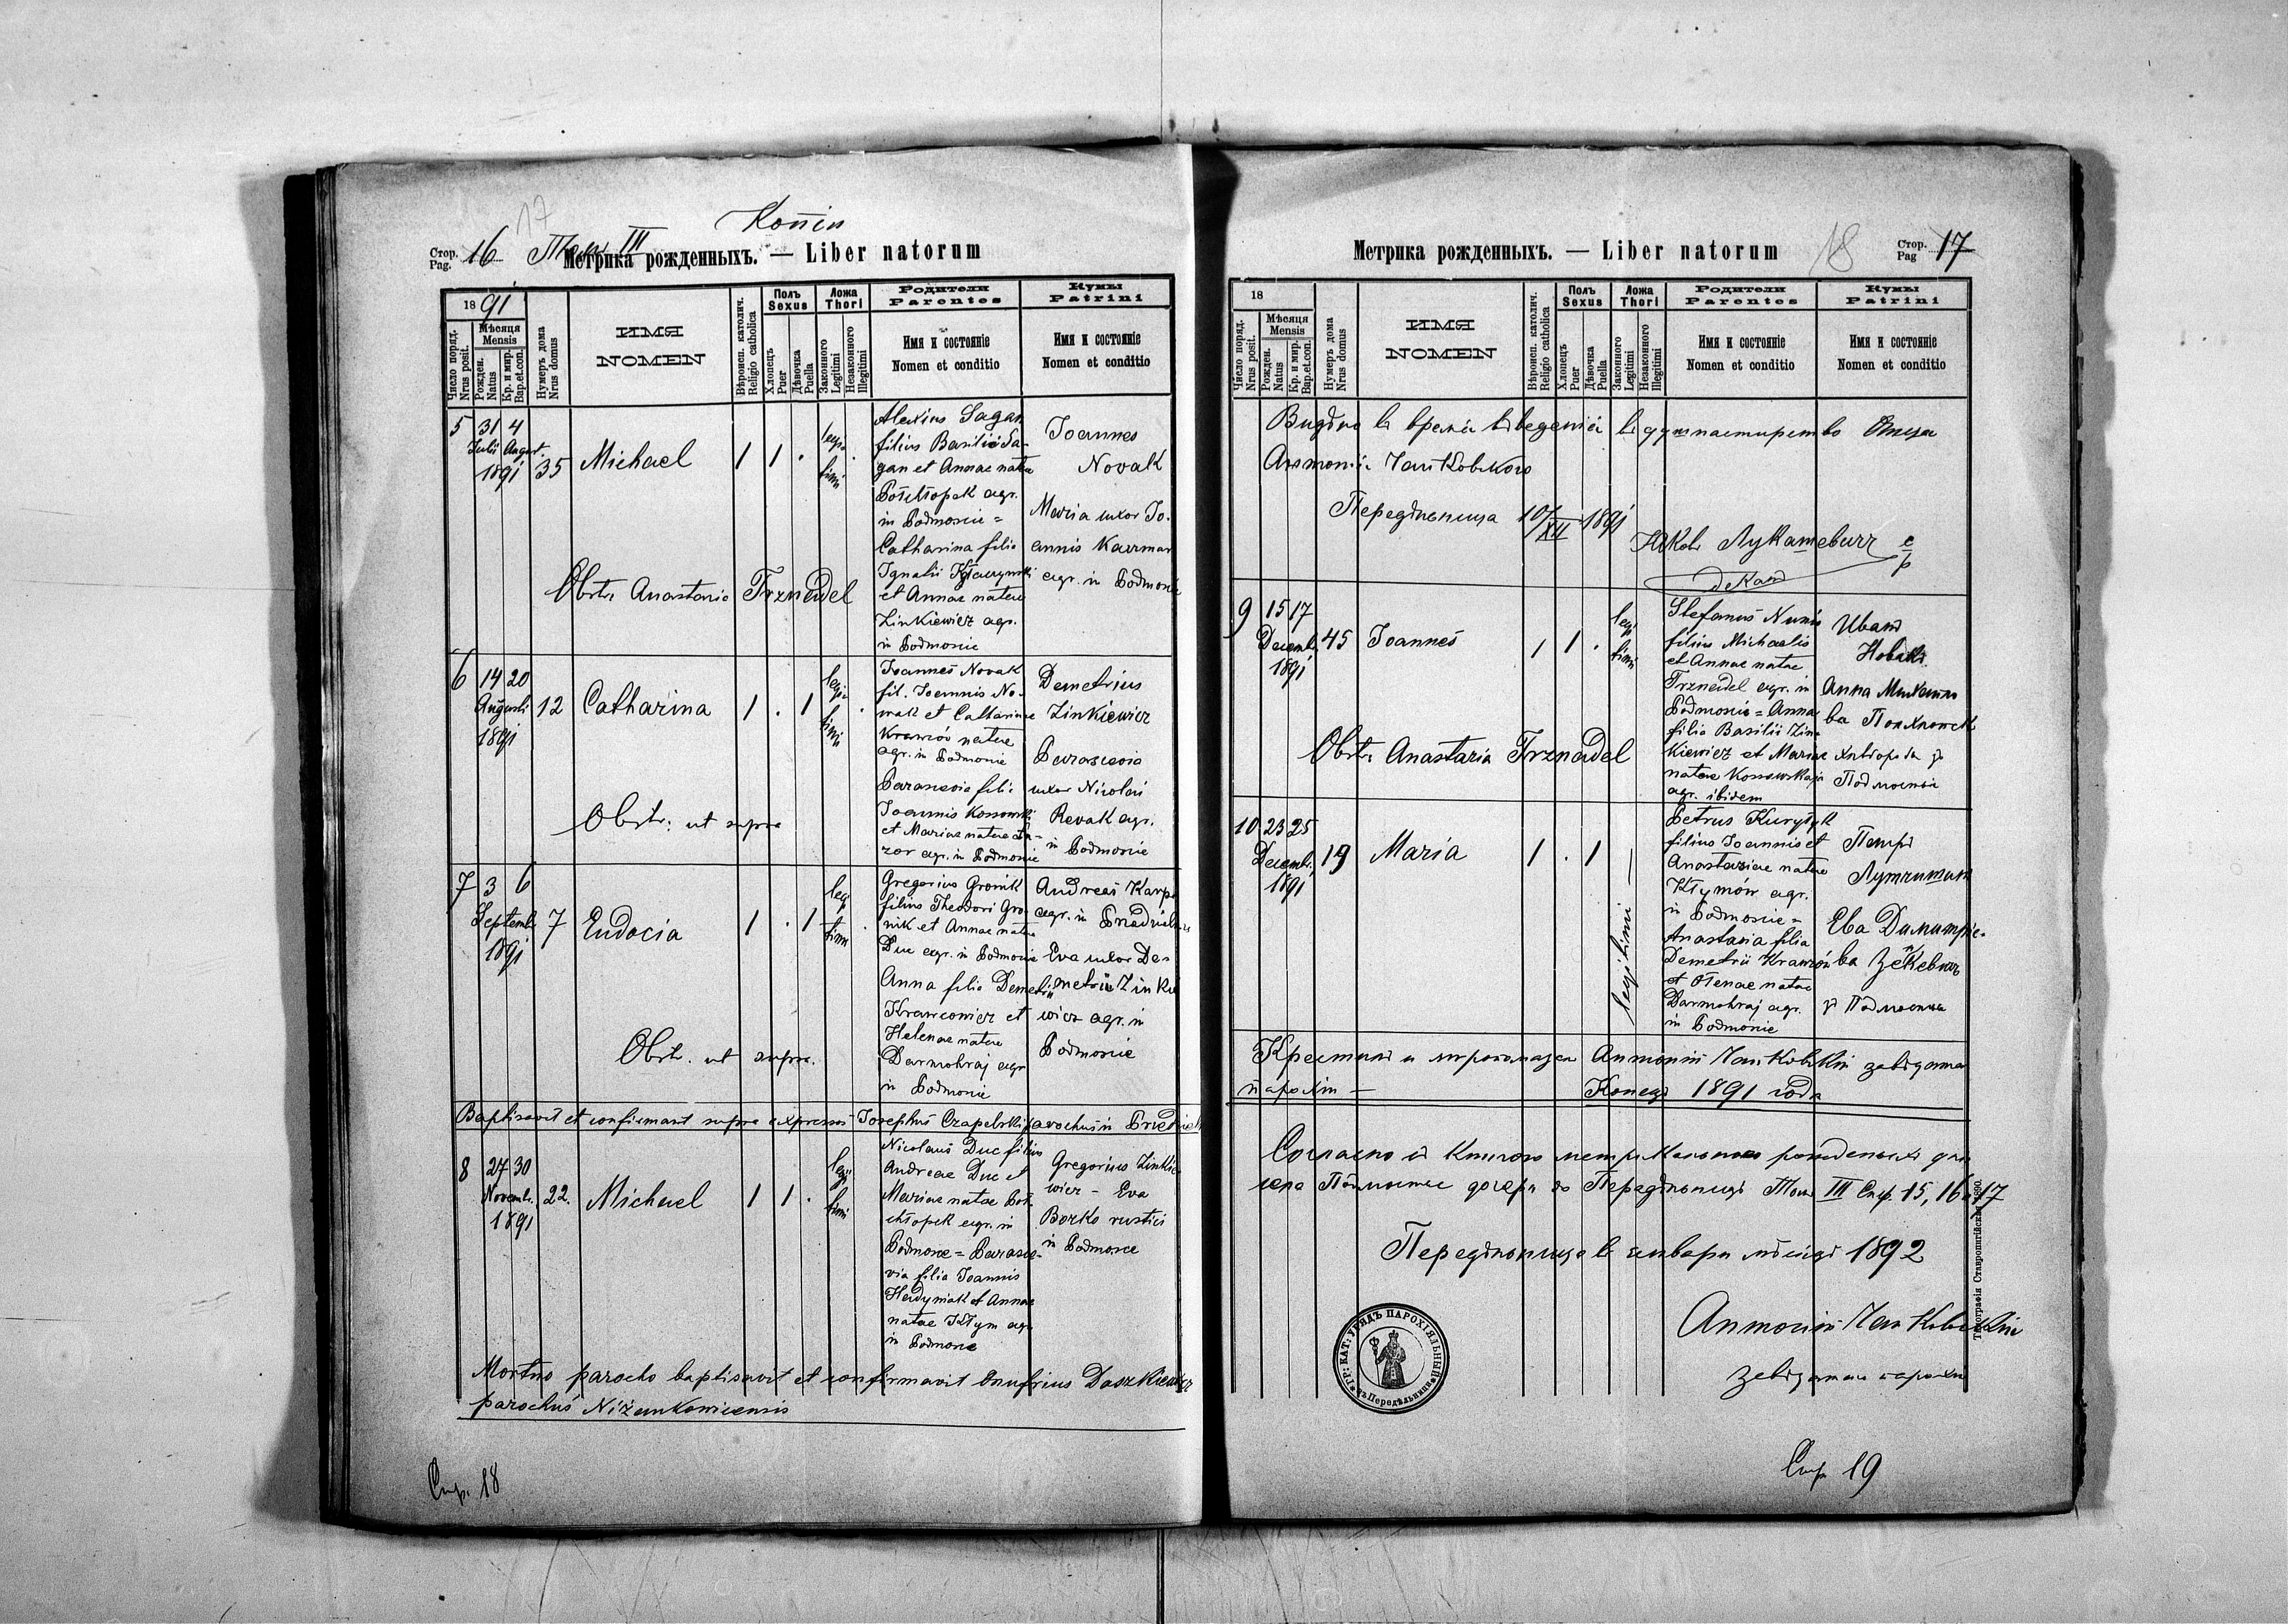 17
Копія
Стор. Pag. 16 Том III
Метрика рожденныхъ. — Liber natorum
1891
Число поряд. Nrus posit.
Мѣсяця Mensis
Рожден. Natus
Кр. и мир. Bap. et con.
Нумеръ дома Nrus domus
ИМЯ
NOMEN
Вѣроисп. католич. Religio catholica
Полъ Sexus
Хлопецъ Puer
Дѣвочка Puella
Ложа Thori
Законного Legitimi
Незаконного Illegitimi
Родители
Parentes
Имя и состояніе
Nomen et conditio
Кумы
Patrini
Имя и состояніе
Nomen et conditio
5 31 4
Julii August.
1891 35 Michael 1 1 . legitimi
Alexius Sagan
filius Basilii Sa-
gan et Annae natae
Półchłopek agr.
in Podmosie =
Catharina filia
Ignatii
et Annae natae
Zinkiewicz agr.
in Podmosie
Joannes
Novak
Maria uxor Jo-
annis Kaczmar
agr. in Podmosie
Obstr. Anastasia Trznadel
6 14 20
Augusti
1891 12 Catharina 1 . 1 legitimi
Joannes Novak
fil. Joannis No-
wak et Catharinae
Krawców natae
agr. in Podmosie
Parascevia filia
Joannis Kossowski
et Mariae natae
agr. in Podmosie
Demetrius
Zinkiewicz
Parascevia
uxor Nicolai
Revak agr.
in Podmosie
Obstr. ut supra
7 3 6
Septemb.
1891 7 Eudocia 1 . 1 legitimi
Gregorius Gronik
filius Theodori Gro-
nik et Annae natae
Duc agr. in Podmosie
Anna filia Demetrii
Krawcowicz et
Helenae natae
Darmohraj agr.
in Podmosie
Andreas Karp
agr. in
Eva uxor De-
metrii Zinkie
wicz agr. in
Podmosie
Obstr. ut supra.
Baptisavit et confirmavit supra expressos Josephus Czapelski parochus in
8 27 30
Novemb.
1891 22. Michael 1 1 . legitimi
Nicolaus Duc filius
Andreae Duc et
Mariae natae Pół-
chłopek agr. in
Podmosie = Parasce-
via filia Joannis
Hadyniak et Annae
natae Kłym agr.
in Podmosie
Gregorius Zinkie
wicz – Eva
Borko rustici
in Podmosie
Mortuo parocho baptisavit et confirmavit Onufrius Daszkiewicz
parochus Niżankowicensis
Стр. 18
Метрика рожденныхъ. — Liber natorum
18
Стор. Pag 17
18
Число поряд. Nrus posit.
Мѣсяця Mensis
Рожден. Natus
Кр. и мир. Bap. et con.
Нумеръ дома Nrus domus
ИМЯ
NOMEN
Вѣроисп. католич. Religio catholica
Полъ Sexus
Хлопецъ Puer
Дѣвочка Puella
Ложа Thori
Законного Legitimi
Незаконного Illegitimi
Родители
Parentes
Имя и состояніе
Nomen et conditio
Кумы
Patrini
Имя и состояніе
Nomen et conditio
Видѣно въ время въведенія въ душпастирство Отца
Антонія
Передѣльница 10/XII 1891
деканъ
9 15 17
Decemb.
1891 45 Joannes 1 1 . legitimi
Stefanus
filius Michaelis
et Annae natae
Trznadel agr. in
Podmosie = Anna
filia Basilii Zin-
kiewicz et Mariae
natae Kossowskaja
agr. ibidem
Иванъ
Новакъ
Анна
Obstr. Anastasia Trznadel
10 23 25
Decemb.
1891 19 Maria 1 . 1 legitimi
Petrus
filius Joannis et
Anastasiae natae
Kłymów agr.
in Podmosie =
Anastasia filia
Demetrii Krawców
et Olenae natae
Darmohraj agr.
in Podmosie
Петръ
Ева Димитріе-
ва
Крестилъ и миропомазалъ Антоній завѣдатель
парохіи — Конецъ 1891 года
Согласно съ книгою метрикальною рожденыхъ для
села Подмостье дочери до Передѣльницѣ Томъ III Стр. 15, 16 и 17
Передѣльница въ январи мѣсяцѣ 1892
Антоній
завѣдатель парохіи
ГР: КАТ: УРЯДЪ ПАРОХІЯЛЬНЫЙ въ Передѣльници
Типографія Ставропигійская 1890.
Стр. 19